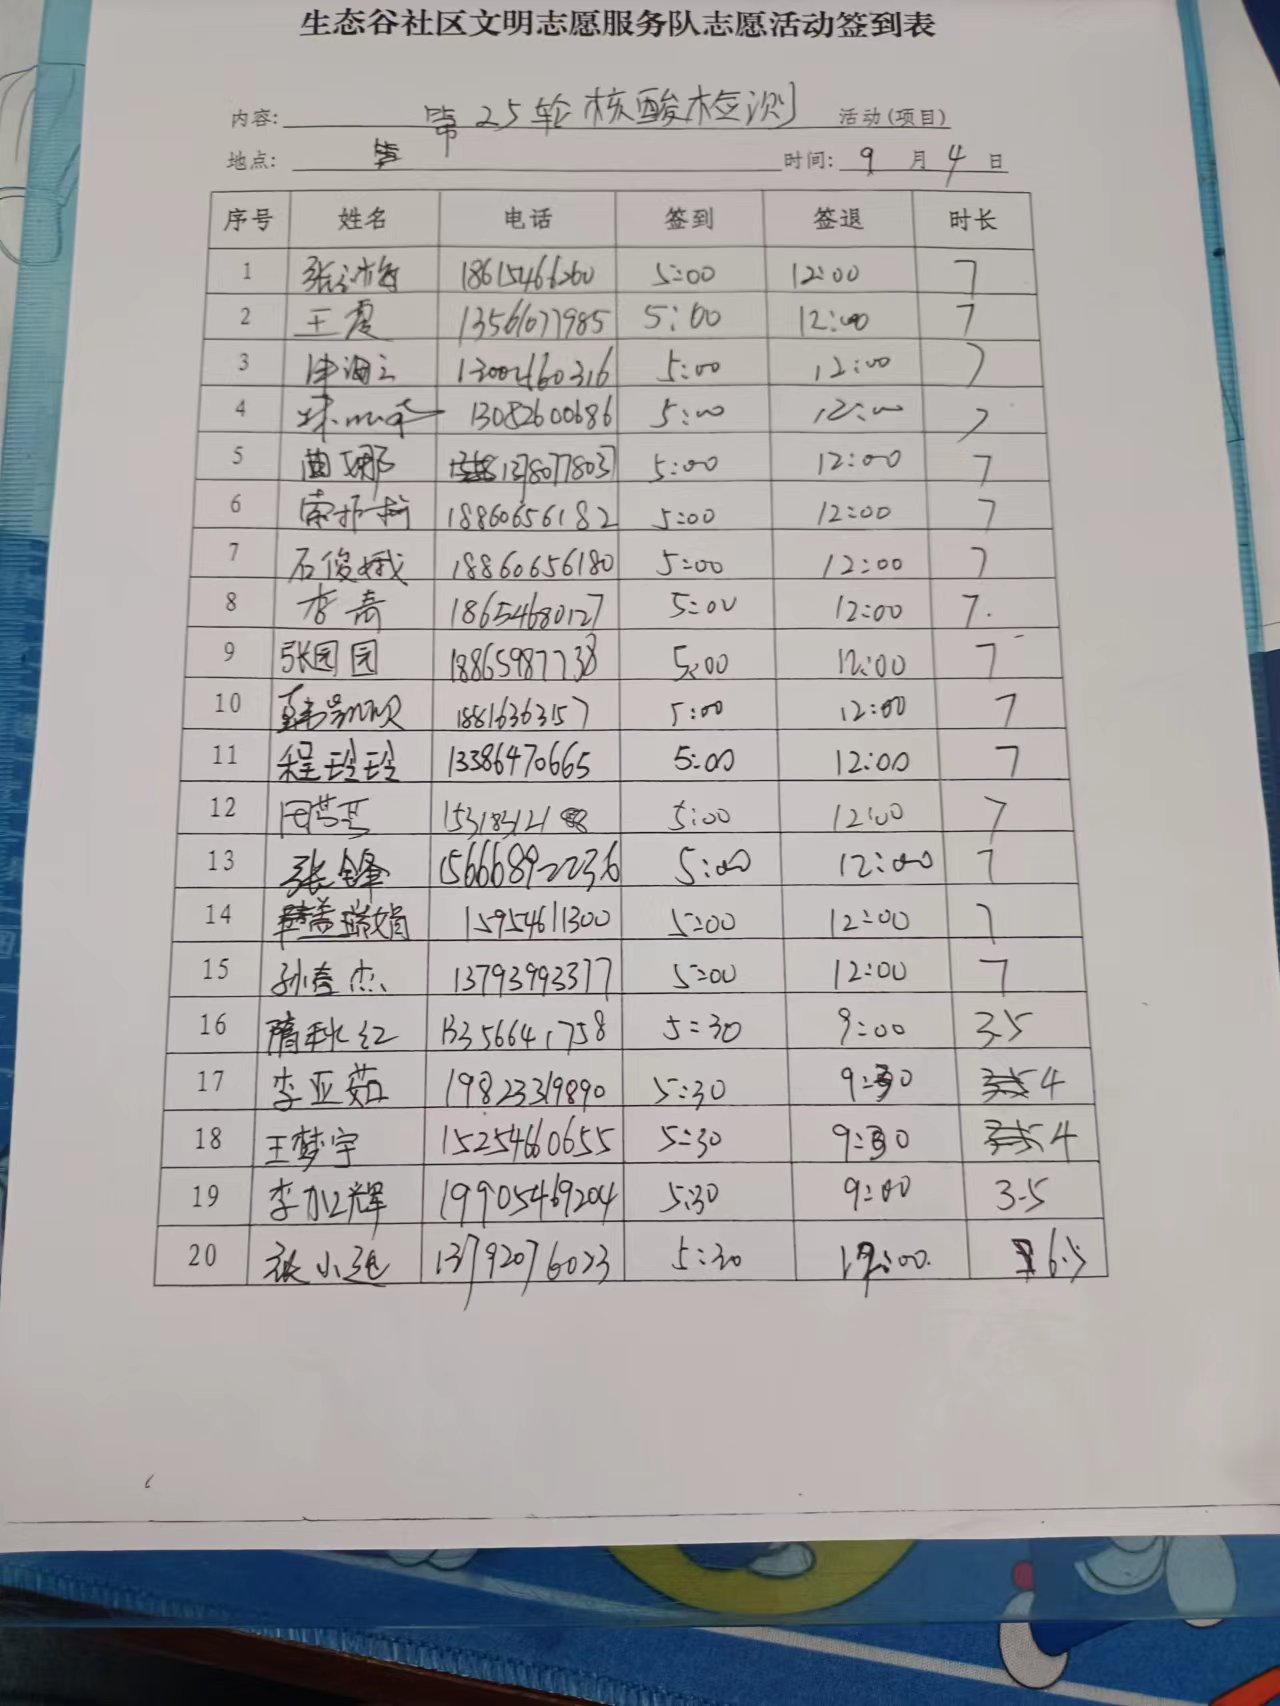 生态谷社区文明志愿服务队志愿活动签到表
内容: 第25轮核酸检测 活动(项目)
地点: 时间: 9 月 4 日
序号 姓名 电话 签到 签退 时长
1 18615466260 5:00 12:00 7
2 王震 13561077985 5:00 12:00 7
3 13004460316 5:00 12:00 7
4 13082600686 5:00 12:00 7
5 曲娜 13780778037 5:00 12:00 7
6 18860656182 5:00 12:00 7
7 石俊娥 18860656180 5:00 12:00 7
8 李嘉 18654680127 5:00 12:00 7.
9 张园园 18865987738 5:00 12:00 7
10 18816363157 5:00 12:00 7
11 程玲玲 13386470665 5:00 12:00 7
12 5:00 12:00 7
13 张锋 15666892236 5:00 12:00 7
14 15954611300 5:00 12:00 7
15 孙春杰 13793993377 5:00 12:00 7
16 隋秋红 13356641758 5:30 9:00 3.5
17 李亚茹 19823319890 5:30 9:30 4
18 王梦宇 15254660655 5:30 9:30 4
19 李加辉 19905469204 5:30 9:00 3.5
20 张小延 13792076023 5:30 12:00. 6.5